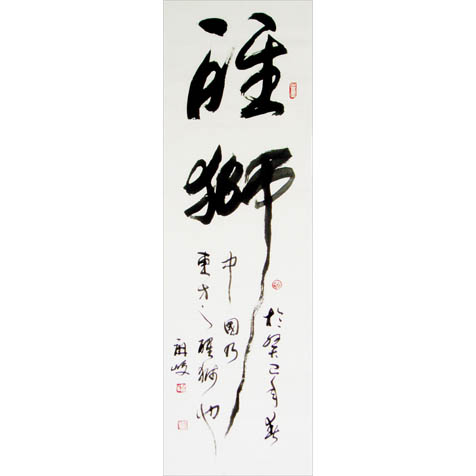 醒獅
中國乃
東方之醒獅也
於癸巳年春